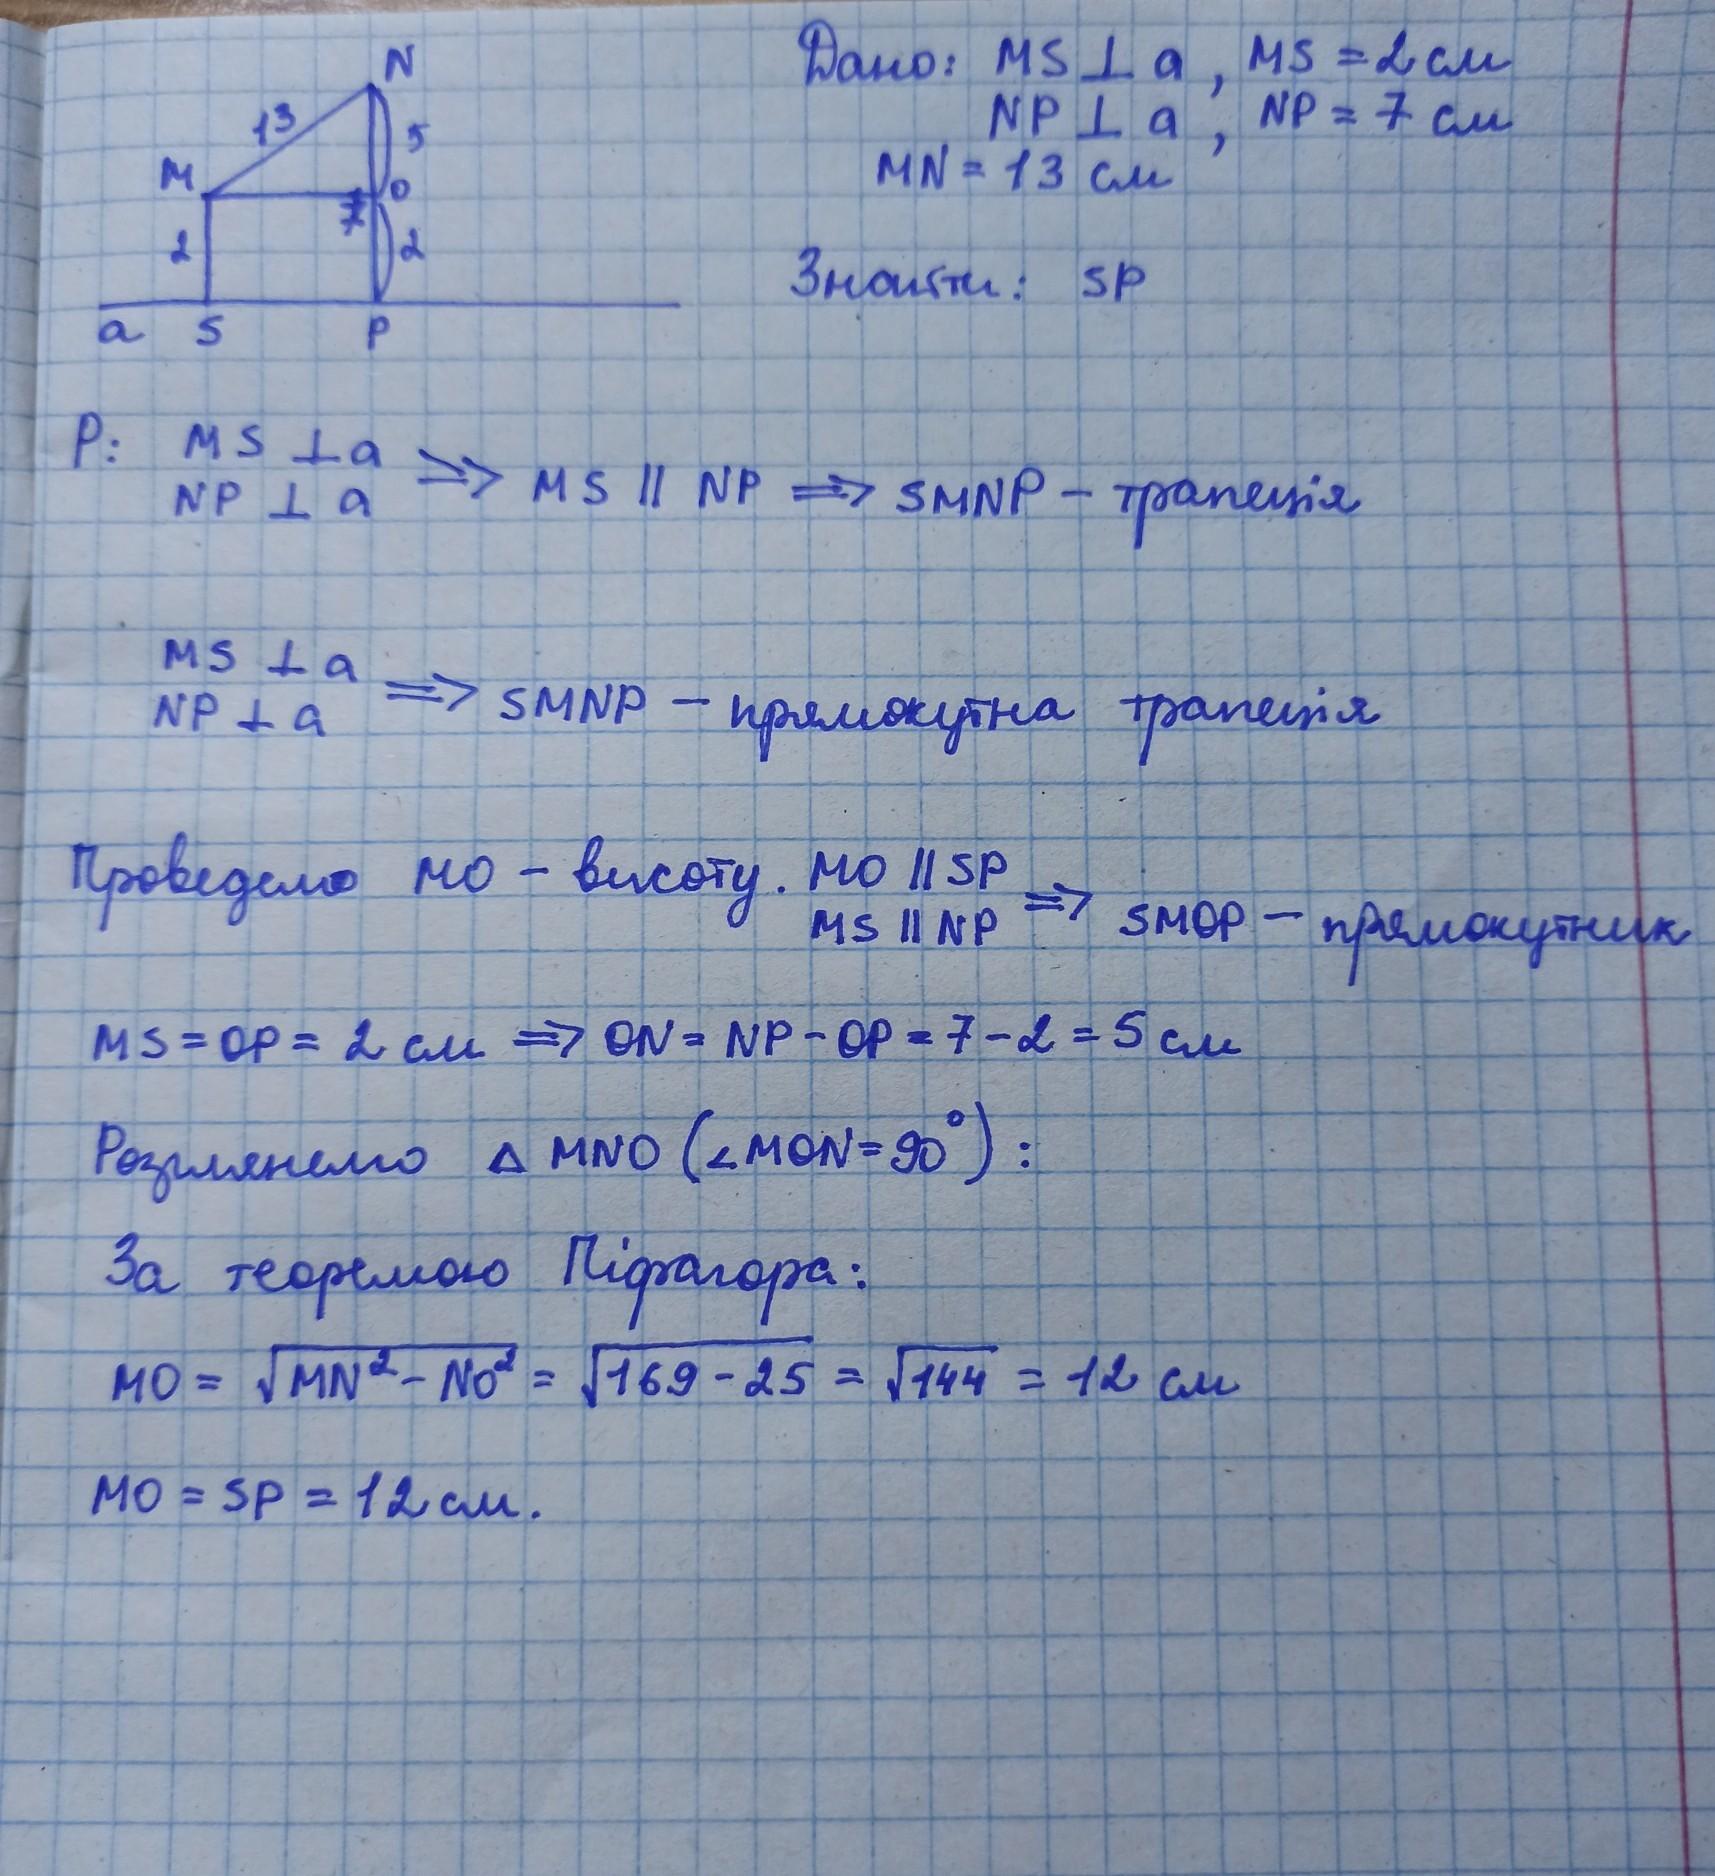 N
13
5
M
O
7
2
2
a S P
Дано: MS ⊥ a, MS = 2 см
NP ⊥ a, NP = 7 см
MN = 13 см
Знайти: SP
Р: MS ⊥ a
NP ⊥ a => MS || NP => SMNP - трапеція
MS ⊥ a
NP ⊥ a => SMNP - прямокутна трапеція
Проведемо MO - висоту. MO || SP
MS || NP => SMOP - прямокутник
MS = OP = 2 см => ON = NP - OP = 7 - 2 = 5 см
Розглянемо △ MNO (∠MON = 90°):
За теоремою Піфагора:
MO = √MN² - NO² = √169 - 25 = √144 = 12 см
MO = SP = 12 см.